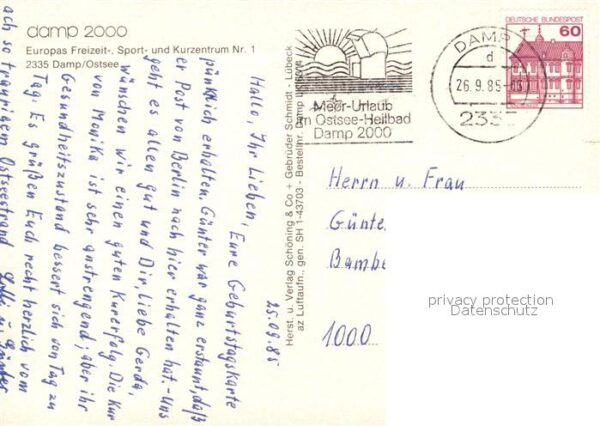 damp 2000
Europas Freizeit-, Sport- und Kurzentrum Nr. 1
2335 Damp/Ostsee
25.09.85
Hallo, Ihr Lieben, Eure Geburtstagskarte
pünktlich erhalten. Günter war ganz erstaunt, daß
er Post von Berlin nach hier erhalten hat. - Uns
geht es allen gut und Dir, liebe Gerda,
wünschen wir einen guten Kurerfolg. Die Kur
von Monika ist sehr anstrengend; aber ihr
Gesundheitszustand bessert sich von Tag zu
Tag. Es grüßen Euch recht herzlich vom
ach so traurigem Ostseestrand Günter
Herst. u. Verlag Schöning & Co + Gebrüder Schmidt - Lübeck
az Luftaufn., gen. SH 1-43703 - Bestellnr. Damp
Meer-Urlaub
im Ostsee-Heilbad
Damp 2000
DAMP
d
26.9.85
2335
DEUTSCHE BUNDESPOST
60
Herrn u. Frau
Günte
Bambe
1000
privacy protection
Datenschutz